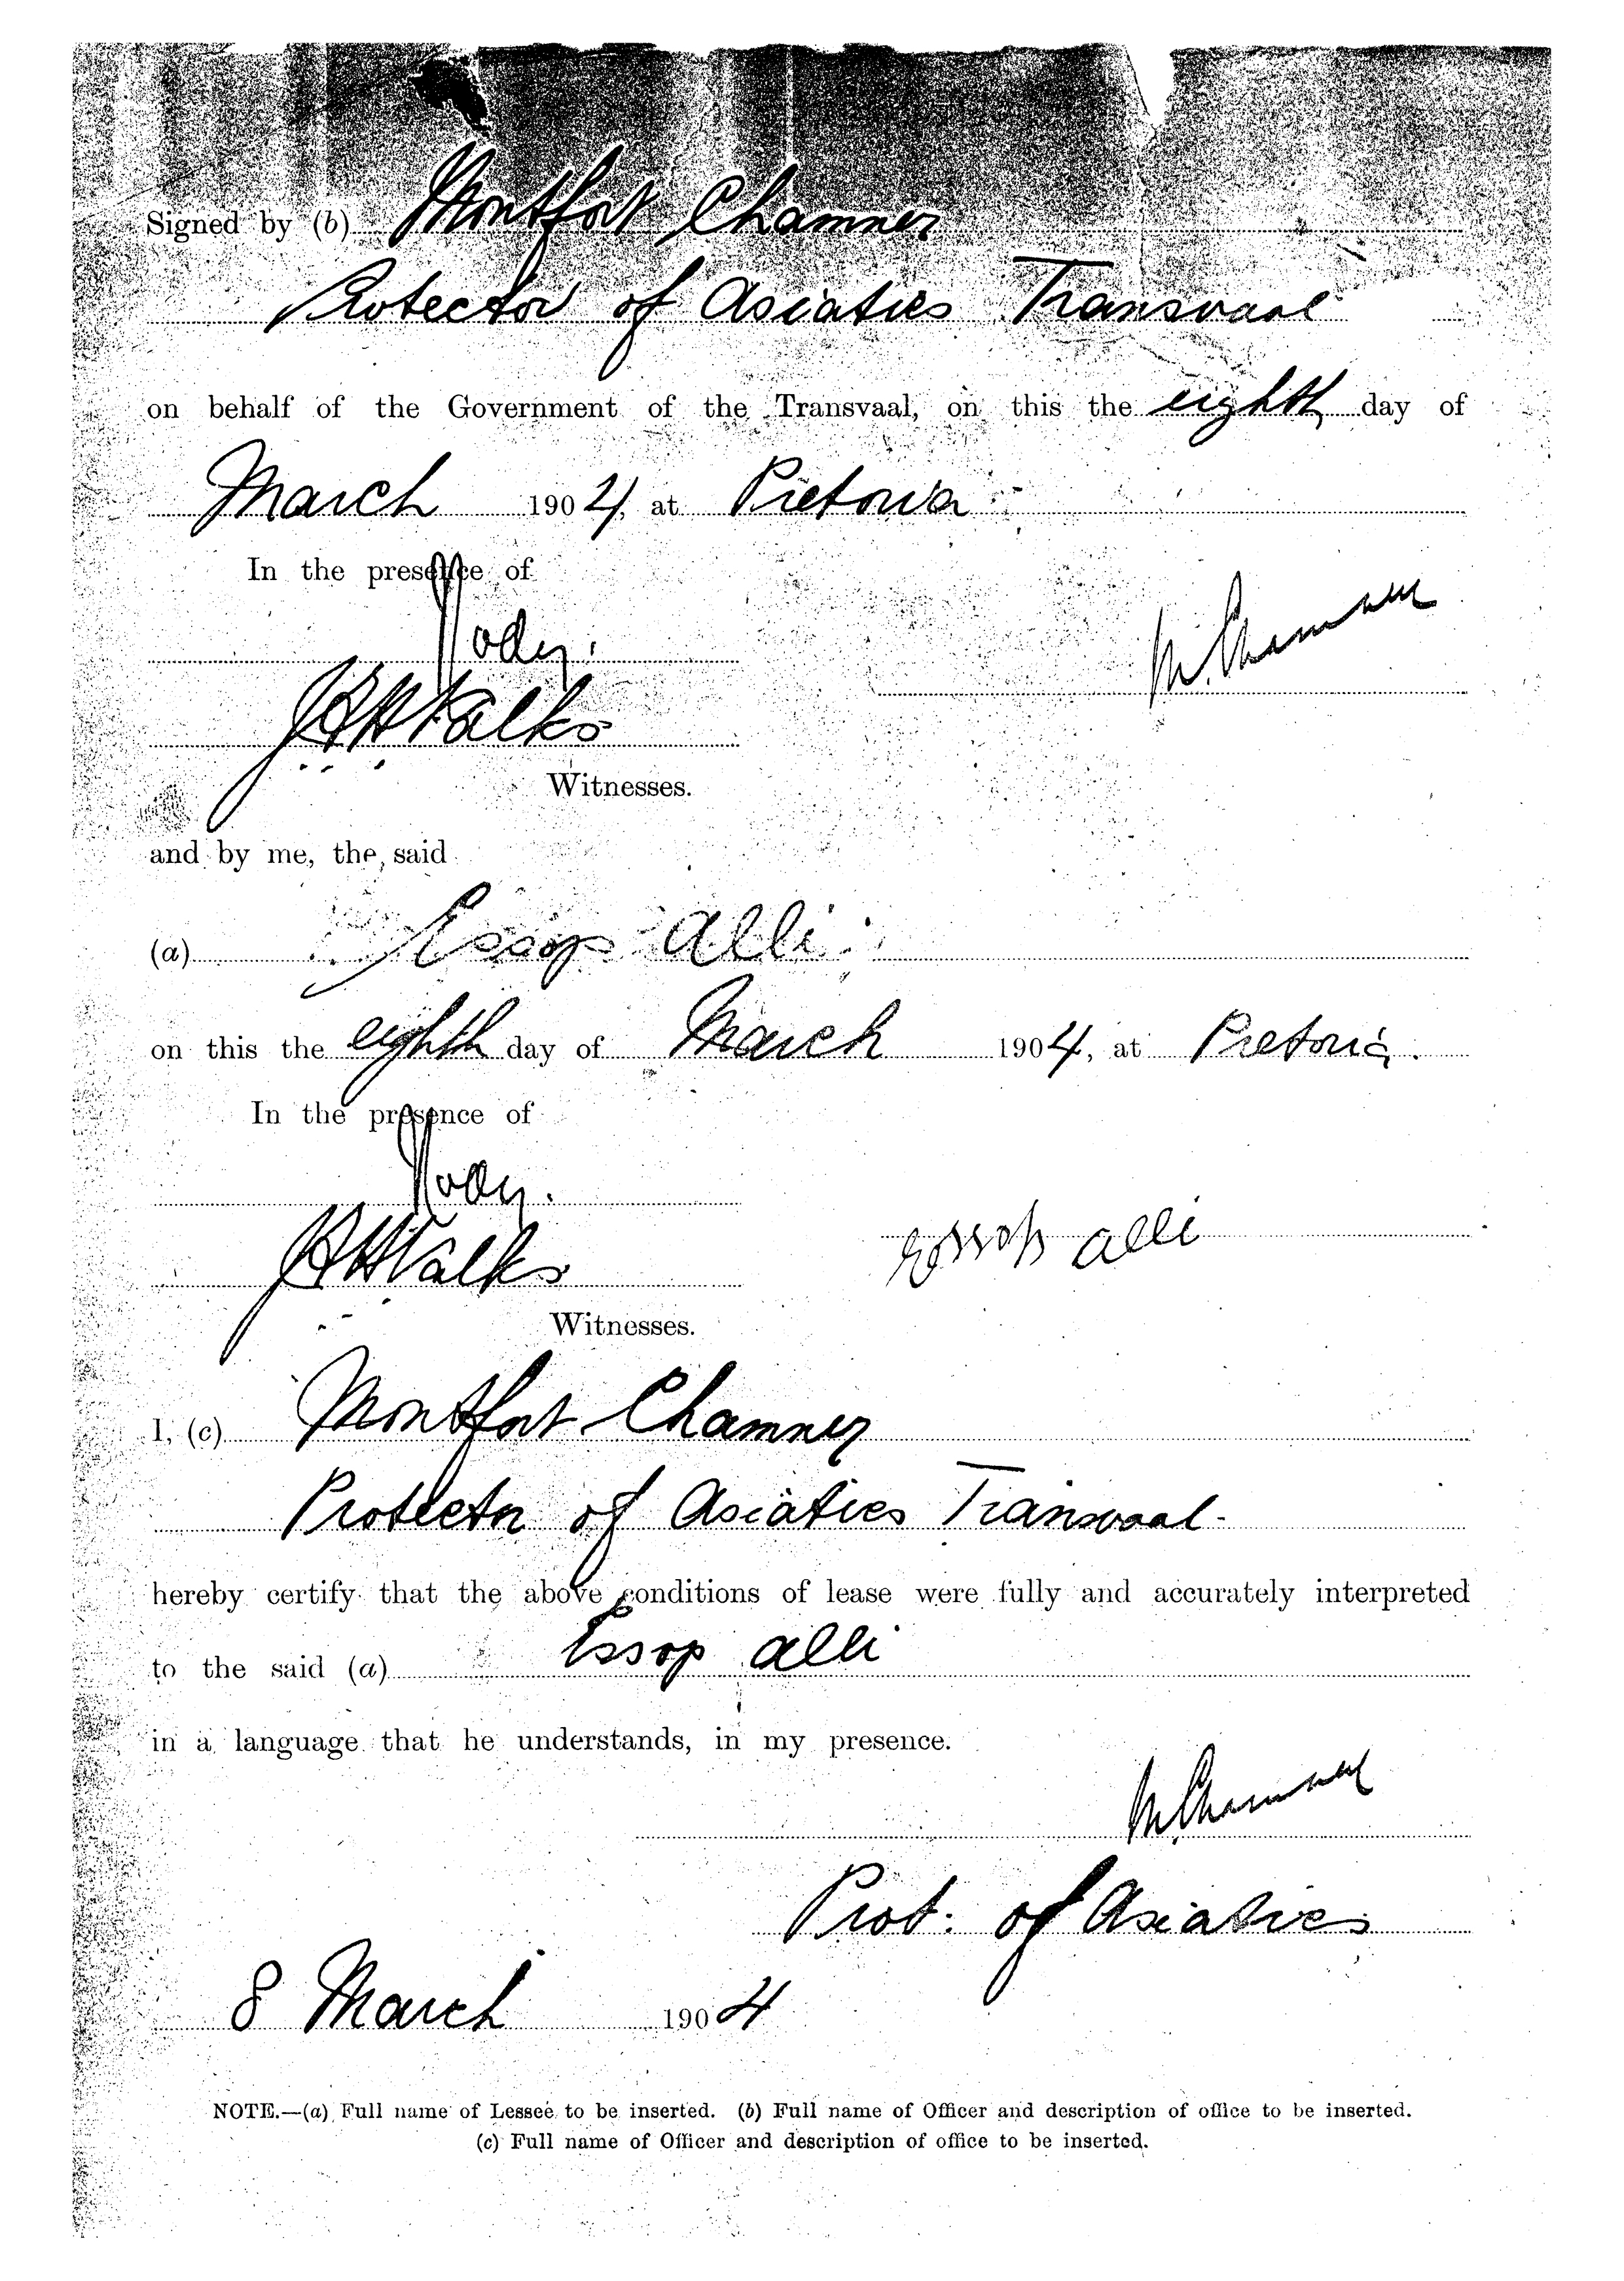 Signed by (b) Montfort Chamney
Protector of Asiatics Transvaal
on behalf of the Government of the Transvaal, on this the eighth day of
March 1904, at Pretoria
In the presence of
M. Chamney
Witnesses.
and by me, the said
(a) Essop Alli
on this the eighth day of March 1904, at Pretoria.
In the presence of
Essop alli
Witnesses.
I, (c) Montfort Chamney
Protector of Asiatics Transvaal.
hereby certify that the above conditions of lease were fully and accurately interpreted
to the said (a) Essop alli
in a language that he understands, in my presence.
M. Chamney
Prot: of Asiatics
8 March 1904
NOTE.—(a) Full name of Lessee to be inserted. (b) Full name of Officer and description of office to be inserted.
(c) Full name of Officer and description of office to be inserted.